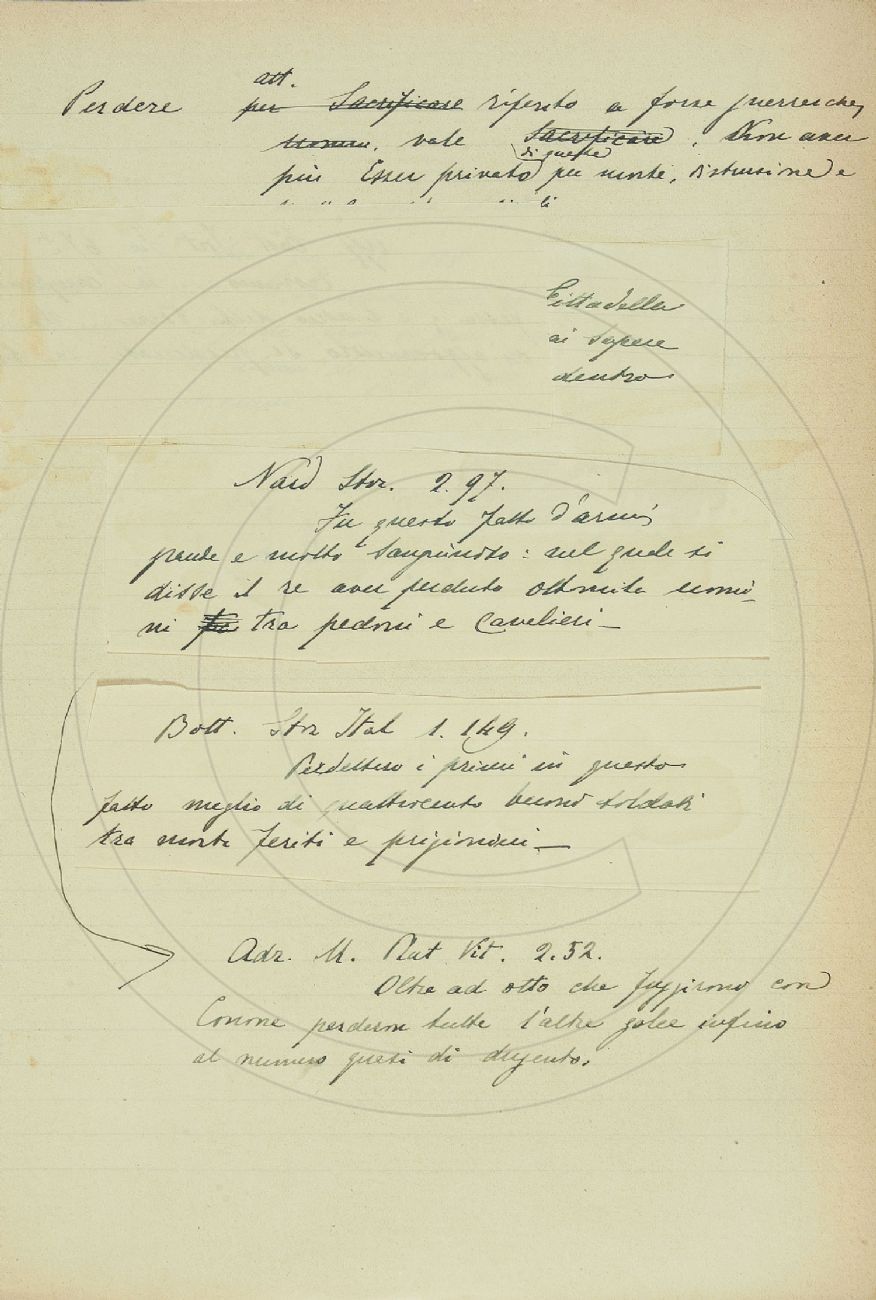 att.
Perdere ~~per Sacrificare~~ riferito a forze guerresche,
~~uomini~~, vale ~~Sacrificare~~, Non aver
di queste
più Esser privato per morte, distruzione e
Cittadella
ai Sapere
dentro
Nard Stor. 2. 97.
Fu questo fatto d'armi
grande e molto sanguinoso: nel quale si
disse il re aver perduto ottomila uomi-
ni tra pedoni e Cavalieri –
Bott. Stor Ital 1. 149.
Perdettero i primi in questo
fatto meglio di quattrocento buoni soldati
tra morti feriti e prigionieri. –
Adr. M. Plut Vit. 2.52.
Oltre ad otto che fuggirono con
Conone perderon tutte l'altre galee infino
al numero quasi di dugento.